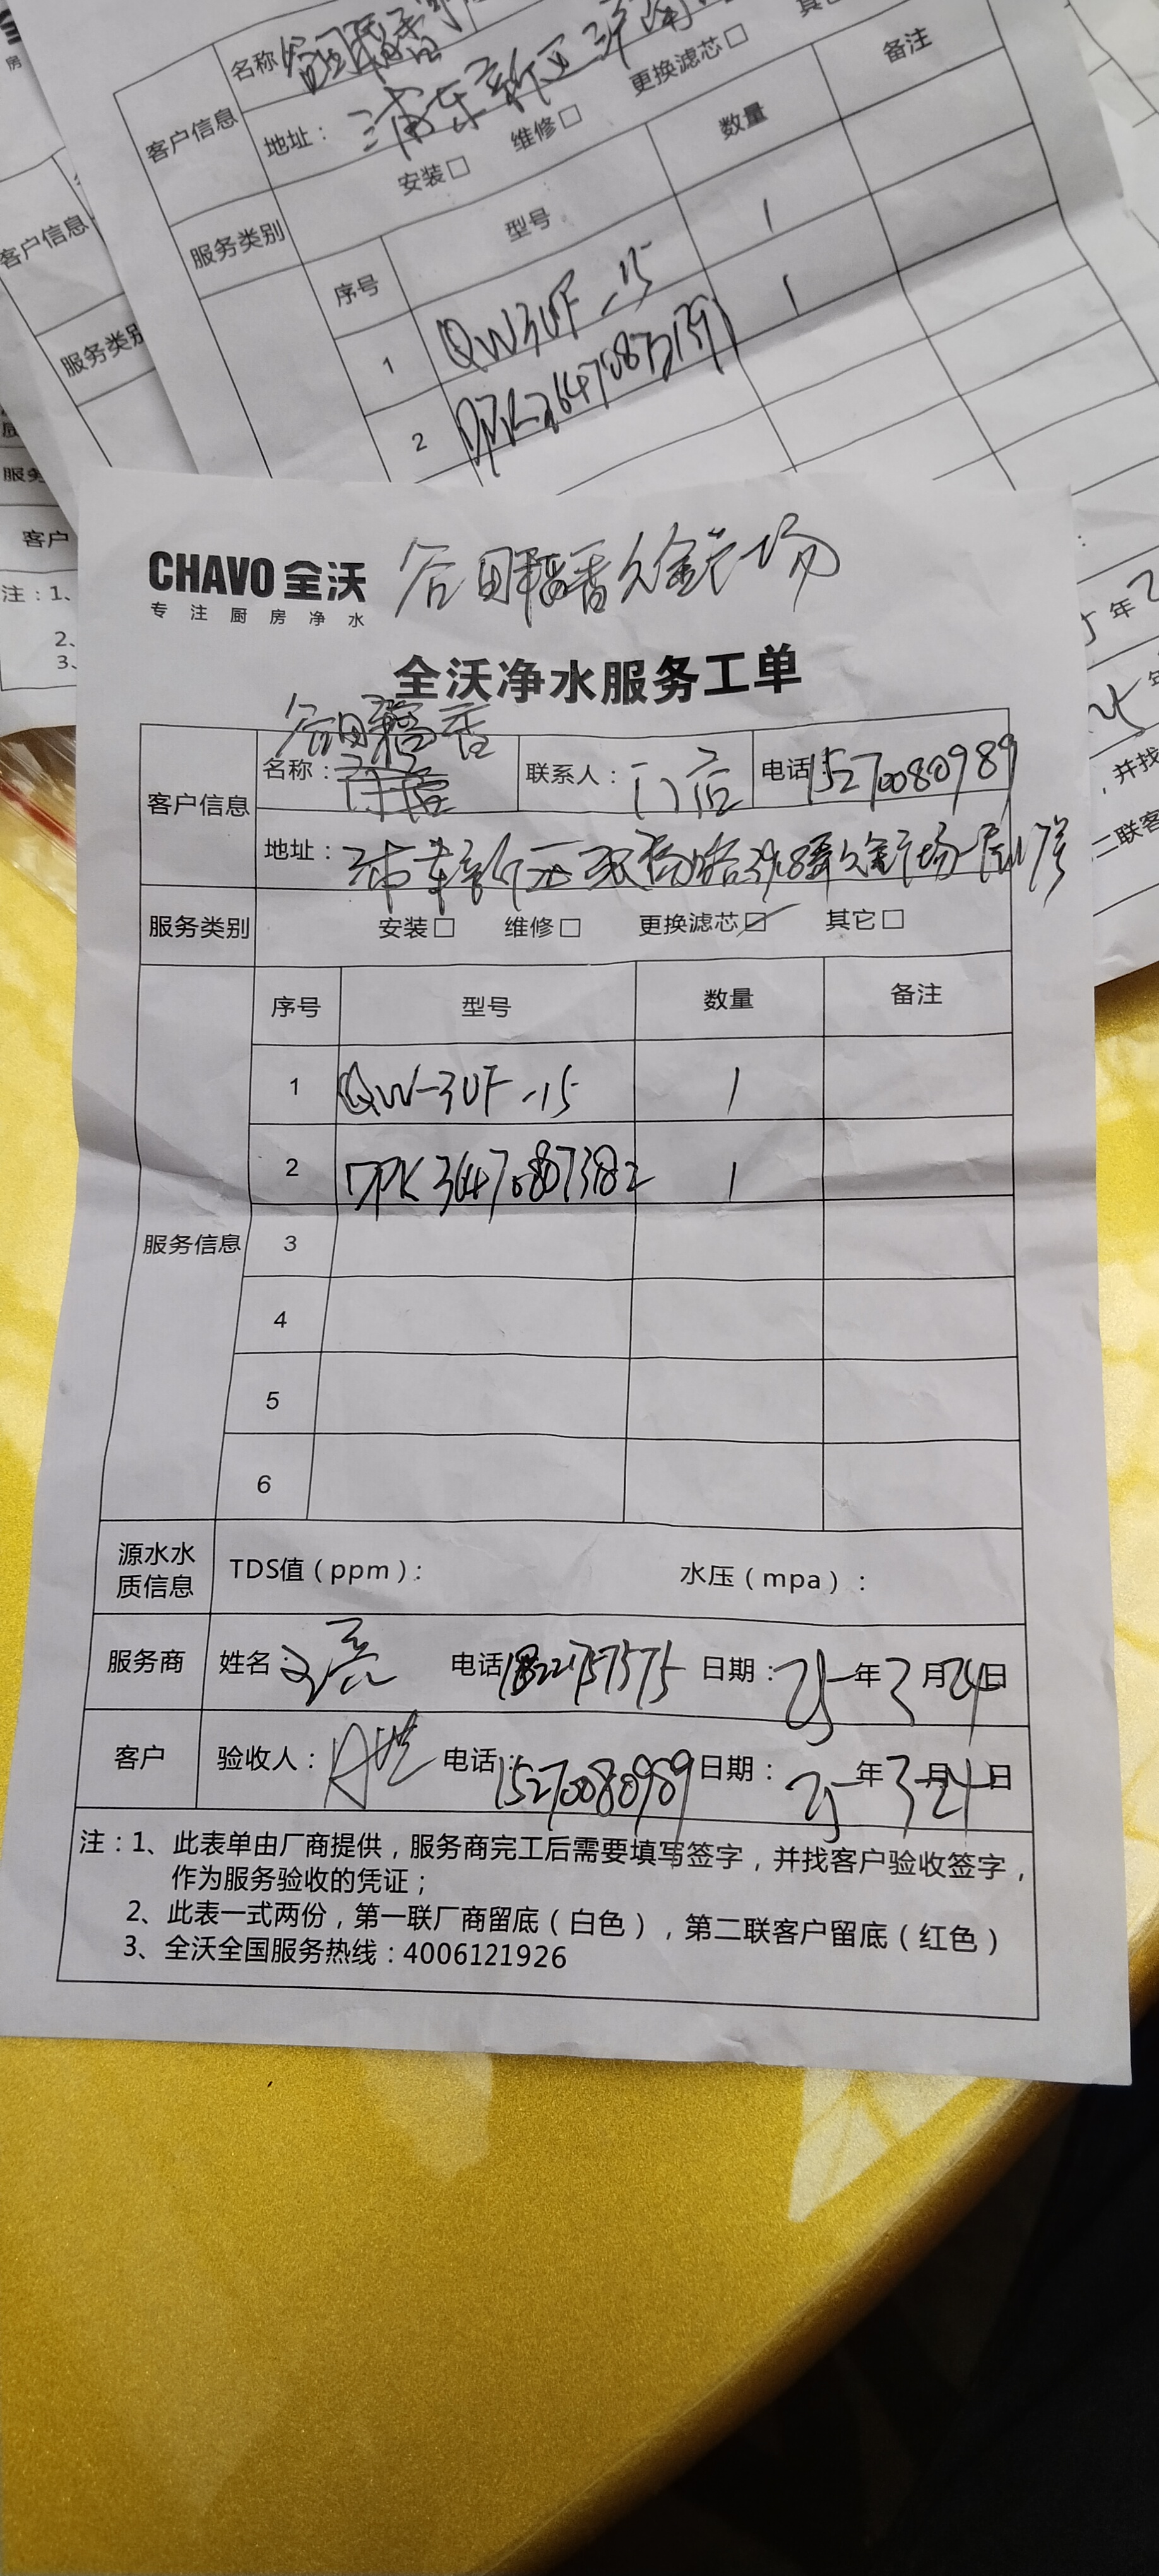 名称
客户信息
地址：浦东新区
安装□ 维修□ 更换滤芯□
服务类别
序号 型号 数量 备注
1 QW3UF-15 1
2 1
客户信息
服务类别
客户
注：1、
2、
3、
CHAVO 全沃
专注厨房净水
谷田稻香久金广场
全沃净水服务工单
谷田稻香
客户信息 名称： 联系人：门店 电话：15270080989
地址：浦东新区
服务类别 安装□ 维修□ 更换滤芯☑ 其它□
服务信息
序号 型号 数量 备注
1 QW-3UF-15 1
2 DPK36470807382 1
3
4
5
6
源水水质信息 TDS值（ppm）： 水压（mpa）：
服务商 姓名： 电话 日期：25年3月24日
客户 验收人： 电话：15270080989 日期：25年3月24日
注：1、此表单由厂商提供，服务商完工后需要填写签字，并找客户验收签字，
作为服务验收的凭证；
2、此表一式两份，第一联厂商留底（白色），第二联客户留底（红色）
3、全沃全国服务热线：4006121926